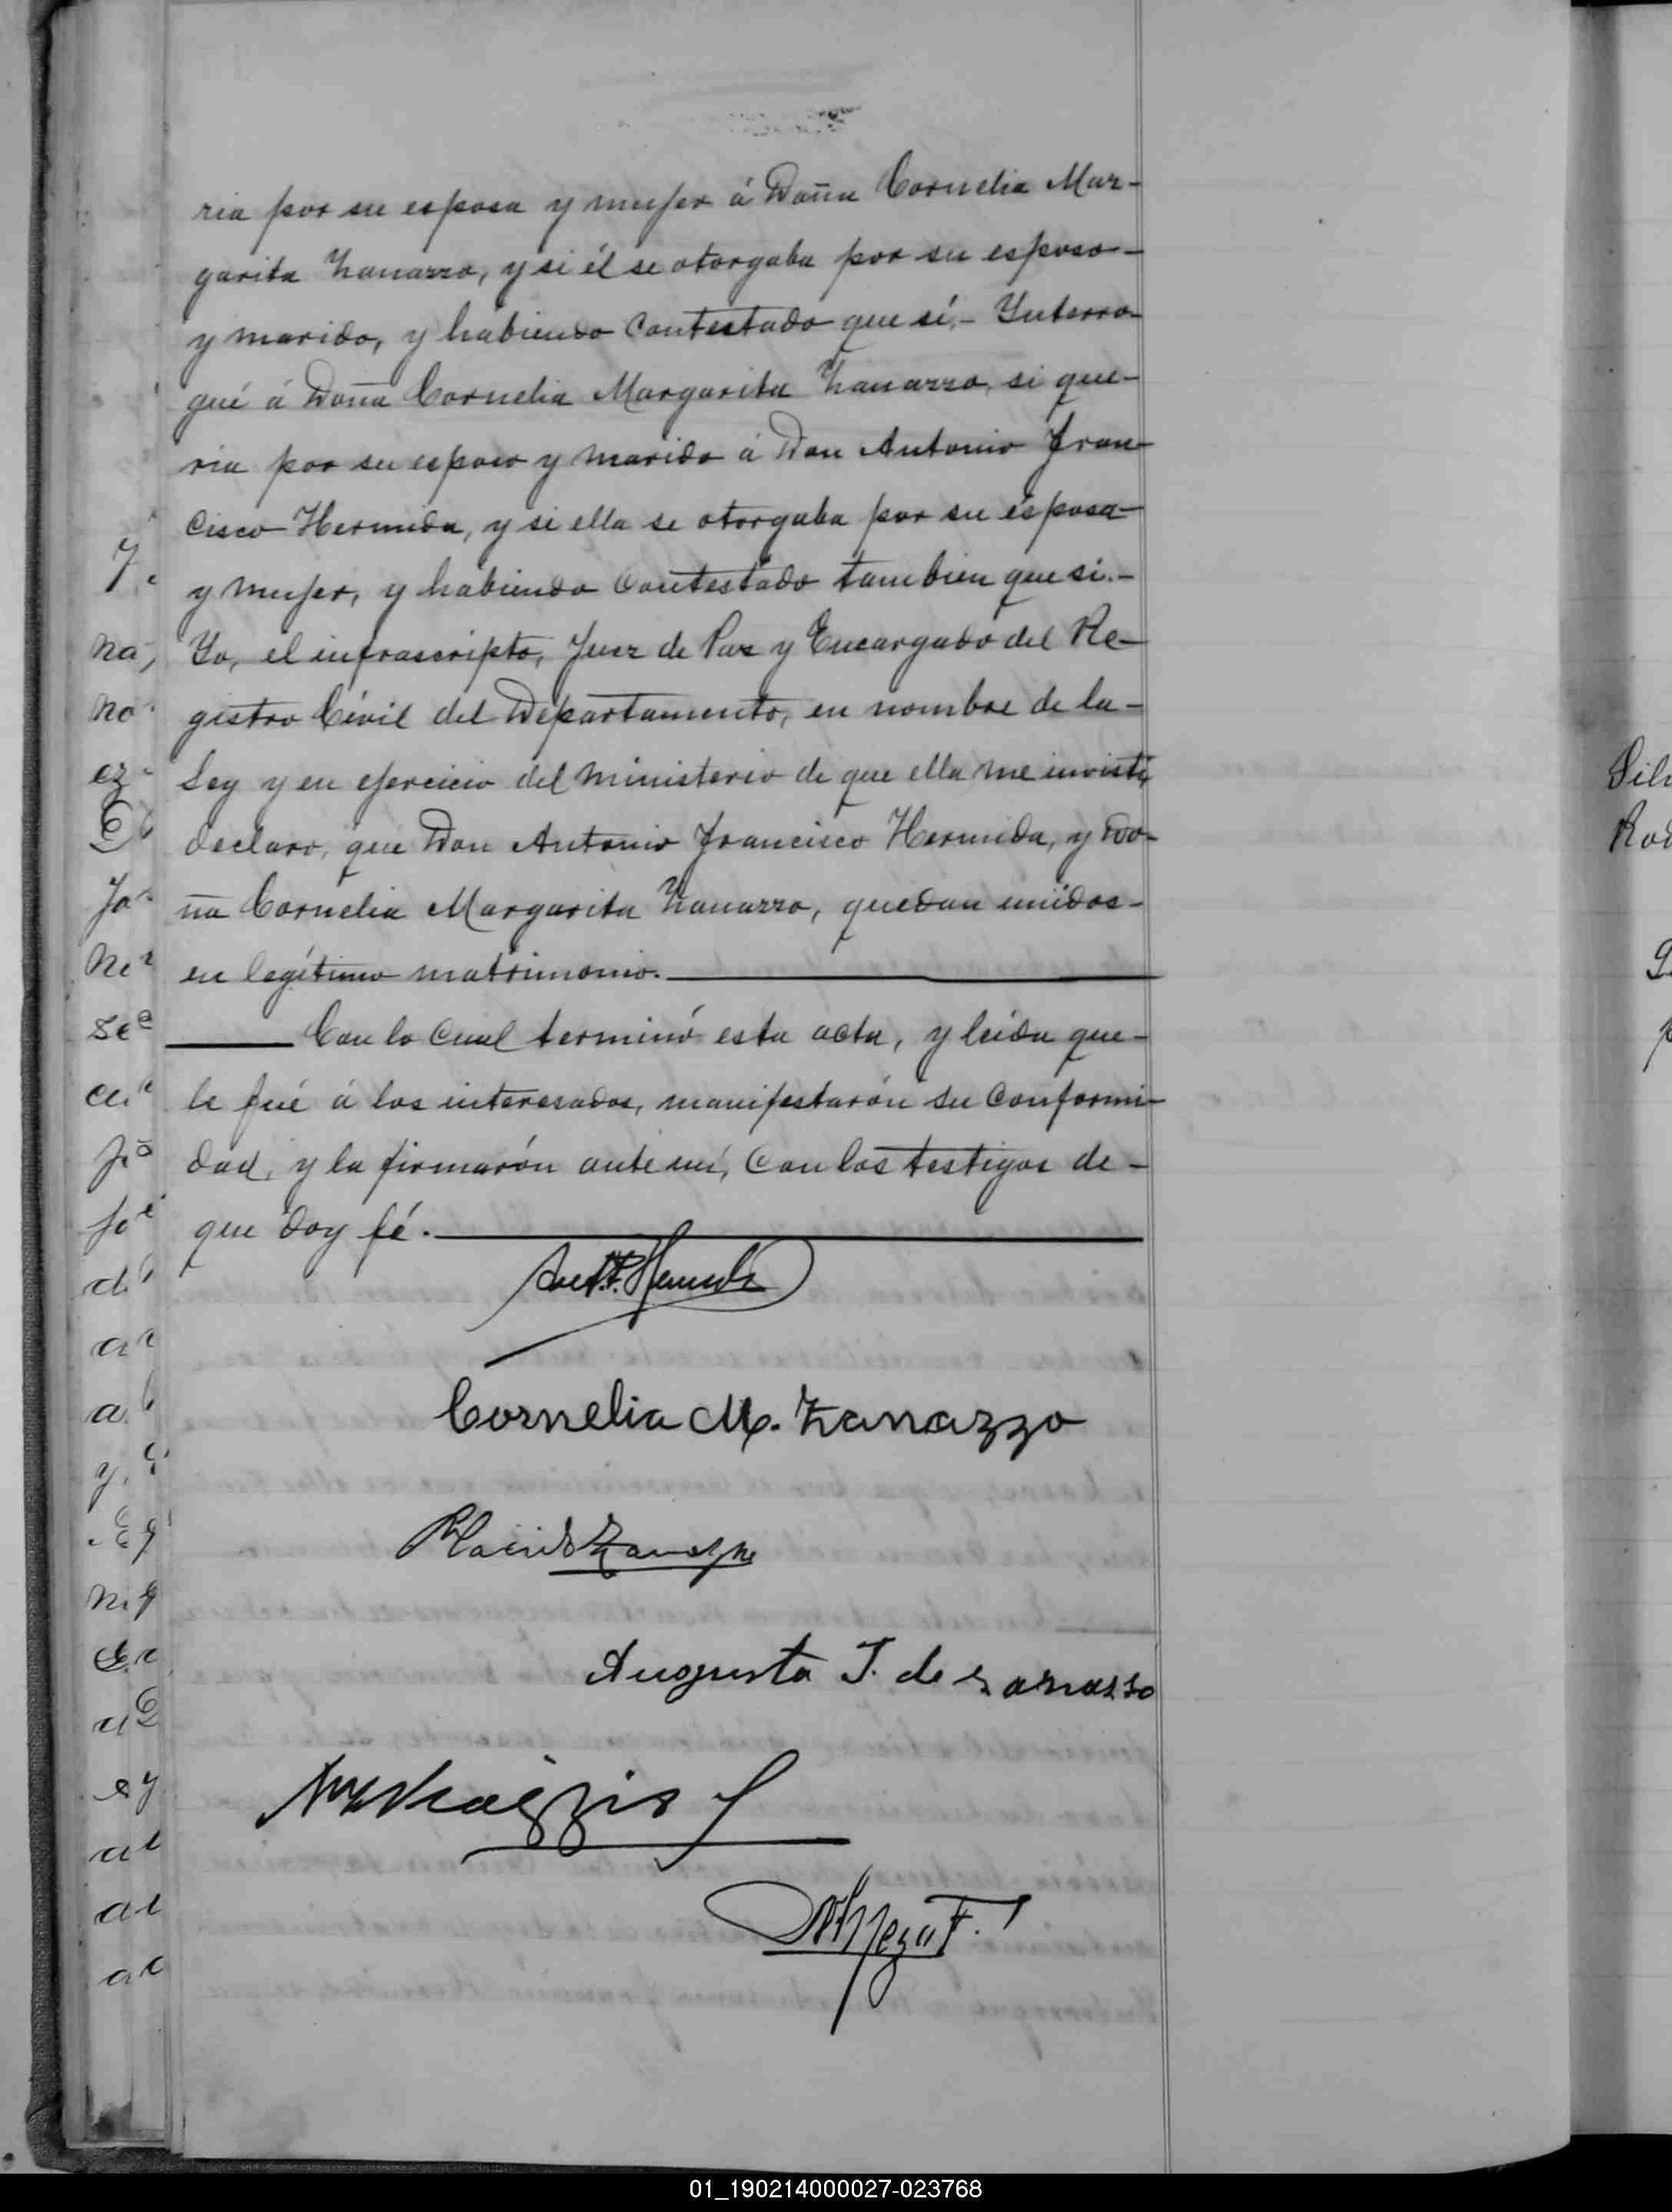 ria por su esposa y mujer á Doña Cornelia Mar-
garita Zanazzo, y si él se otorgaba por su esposo-
y marido, y habiendo contestado que sí,- Ynterro-
gué á Doña Cornelia Margarita Zanazzo, si que-
ria por su esposo y marido á Don Antonio Fran-
cisco Hermida, y si ella se otorgaba por su esposa-
y mujer, y habiendo contestado tambien que si.-
Yo, el infrascripto, Juez de Paz y Encargado del Re-
gistro Civil del Departamento, en nombre de la-
Ley y en ejercicio del ministerio de que ella me inviste,
declaro, que Don Antonio Francisco Hermida, y Do-
ña Cornelia Margarita Zanazzo, quedan unidos-
en legítimo matrimonio.
Con lo cual terminó esta acta, y leida que-
le fué á los interesados, manifestarón su conformi-
dad, y la firmarón ante mí, con los testigos de-
que doy fé.
Ant. F. Hermida
Cornelia M. Zanazzo
Placido Zanazzo
Augusta J. de Zanazzo
na,
no
ez
Jo
a
y
Silv
Rod
01_190214000027-023768